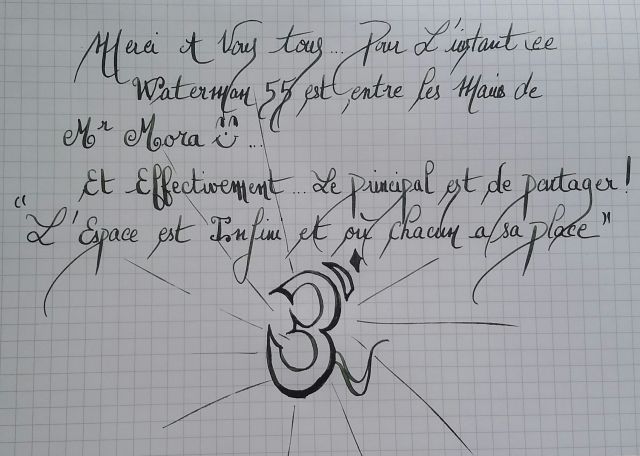 Merci à Vous tous... Pour L'instant ce
Waterman 55 est entre les Mains de
Mr Mora...
Et Effectivement... Le principal est de partager!
"L'Espace est Infini et où chacun a sa place"